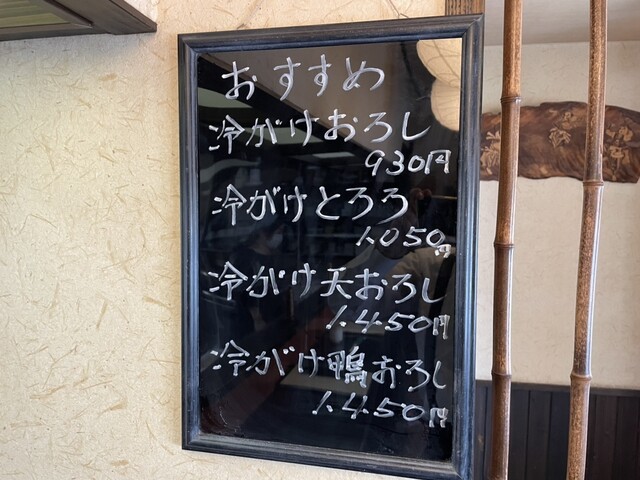 おすすめ
冷がけおろし
930円
冷がけとろろ
1.050円
冷がけ天おろし
1.450円
冷がけ鴨おろし
1.450円